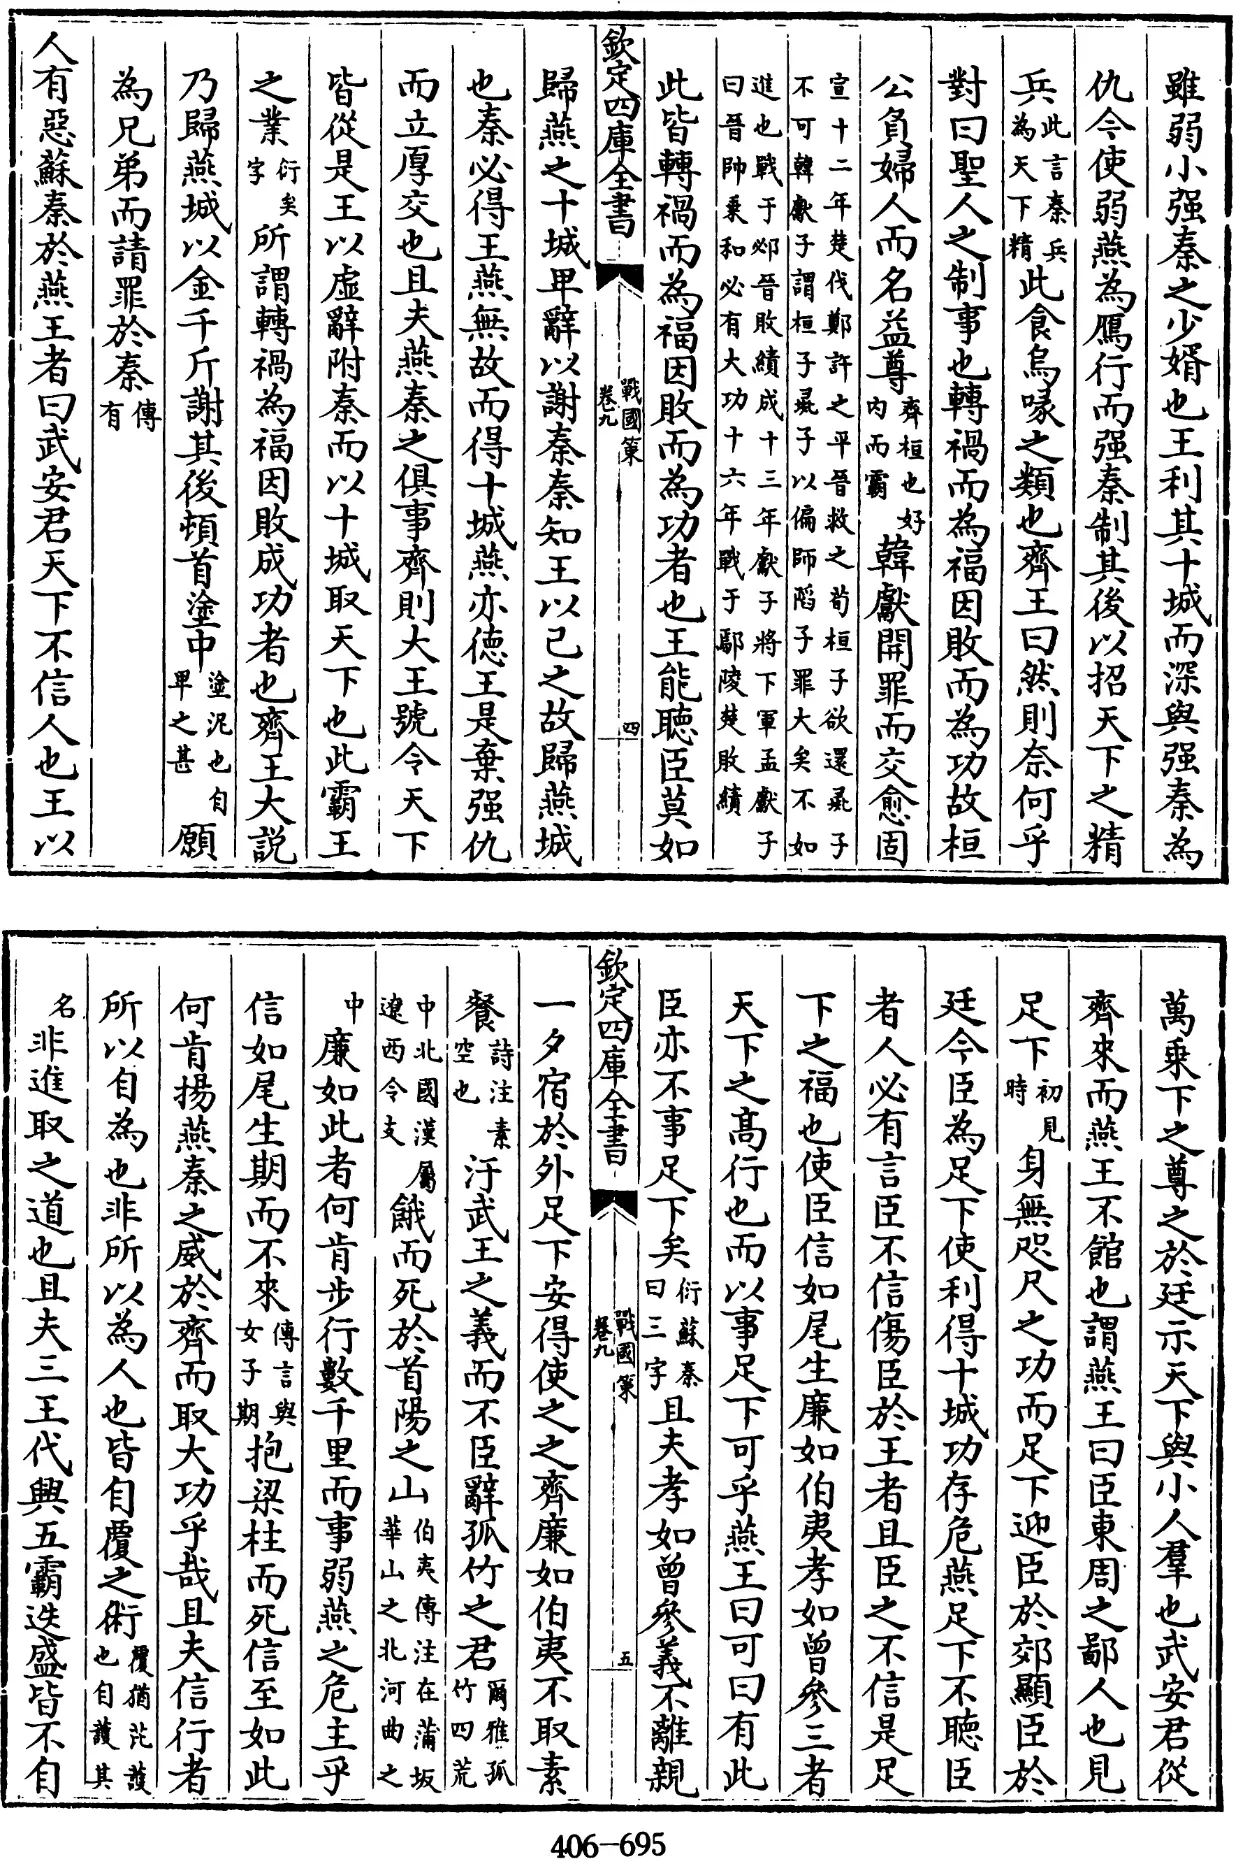 雖弱小强秦之少婿也王利其十城而深與强秦為
仇今使弱燕為鴈行而强秦制其後以招天下之精
兵此言秦兵為天下精此食烏喙之類也齊王曰然則奈何乎
對曰聖人之制事也轉禍而為福因敗而為功故桓
公負婦人而名益尊齊桓也好内而霸韓獻開罪而交愈固
宣十二年楚伐鄭許之平晉救之荀桓子欲還彘子
不可韓獻子謂桓子彘子以偏師陷子罪大矣不如
進也戰于邲晉敗績成十三年獻子將下軍孟獻子
曰晉帥乗和必有大功十六年戰于鄢陵楚敗績
此皆轉禍而為福因敗而為功者也王能聽臣莫如
欽定四庫全書
戰國策
卷九
四
歸燕之十城卑辭以謝秦秦知王以己之故歸燕城
也秦必得王燕無故而得十城燕亦德王是棄强仇
而立厚交也且夫燕秦之俱事齊則大王號令天下
皆從是王以虛辭附秦而以十城取天下也此霸王
之業衍矣字所謂轉禍為福因敗成功者也齊王大説
乃歸燕城以金千斤謝其後頓首塗中塗泥也自卑之甚願
為兄弟而請罪於秦傳有
人有惡蘇秦於燕王者曰武安君天下不信人也王以
萬乗下之尊之於廷示天下與小人羣也武安君從
齊來而燕王不館也謂燕王曰臣東周之鄙人也見
足下初見時身無咫尺之功而足下迎臣於郊顯臣於
廷今臣為足下使利得十城功存危燕足下不聽臣
者人必有言臣不信傷臣於王者且臣之不信是足
下之福也使臣信如尾生廉如伯夷孝如曾參三者
天下之髙行也而以事足下可乎燕王曰可曰有此
臣亦不事足下矣衍蘇秦曰三字且夫孝如曾參義不離親
欽定四庫全書
戰國策
卷九
五
一夕宿於外足下安得使之之齊廉如伯夷不取素
餐詩注素空也汙武王之義而不臣辭孤竹之君爾雅孤竹四荒
中北國漢屬遼西令支餓而死於首陽之山伯夷傳注在蒲坂華山之北河曲之
中廉如此者何肯步行數千里而事弱燕之危主乎
信如尾生期而不來傳言與女子期抱梁柱而死信至如此
何肯揚燕秦之威於齊而取大功乎哉且夫信行者
所以自為也非所以為人也皆自覆之術覆猶芘護也自護其
名非進取之道也且夫三王代興五霸迭盛皆不自
406-695